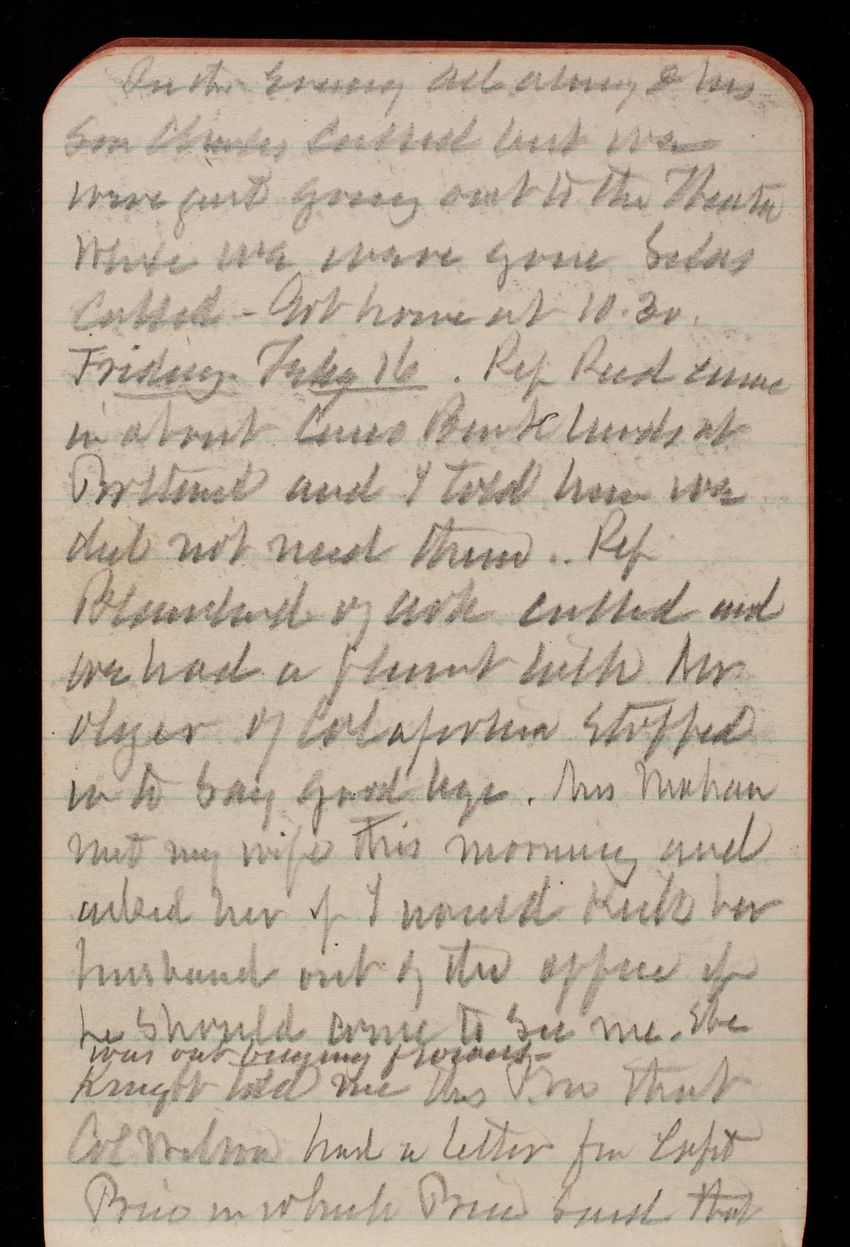 In the Evening and his
Son Charles Called but we
were just going out to the Theatre
While we were gone Silas
Called - Got home at 10.30.
Friday Feby 16. Rep Reed came
in about Lens Bank lands at
Portland and I told him we
did not need them.. Rep
Blanchard of called and
we had a pleasant talk Mr
of California Stopped
in to Say good bye. Mrs Mahan
met my wife this morning and
asked her if I would Kick her
husband out of the office if
he Should come to See me. She
was out buying flowers-
Knight told me this P.M. that
Col Wilson had a letter fm Capt
Price in which Price said that